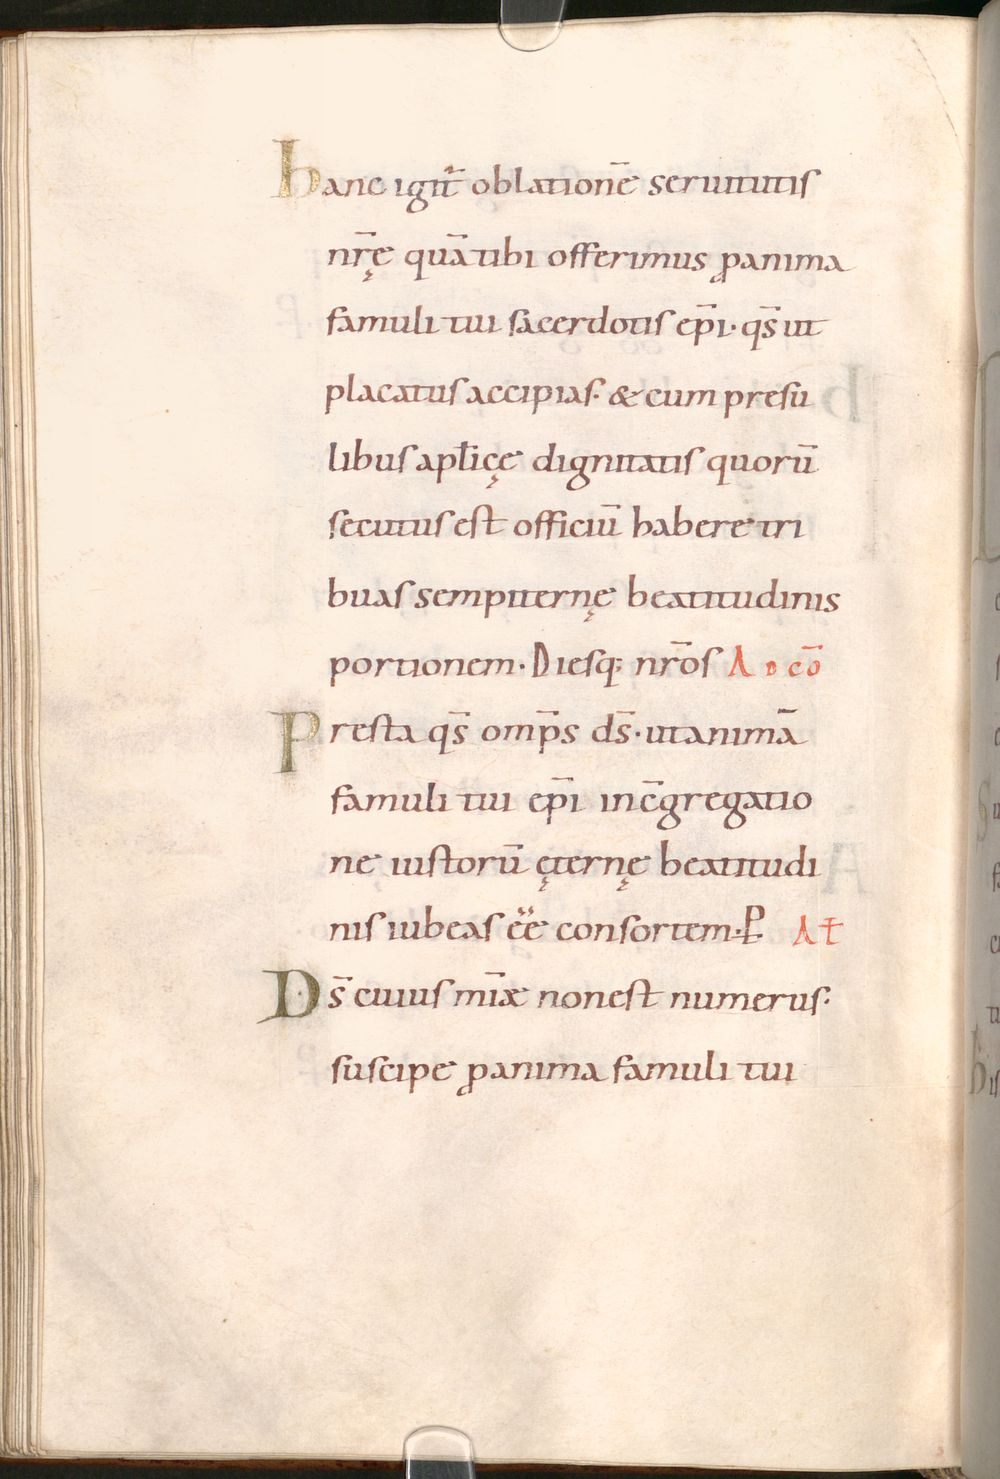 Hanc igit̄ oblationē seruitutis
nr̄ę quā tibi offerimus ꝓ anima
famuli tui sacerdotis ep̄i· qs̄ ut
placatus accipias· & cum presu
libus apłicę dignitatis quorū
secutus est officiū habere tri
buas sempiternę beatitudinis
portionem· Diesq; nr̄os A D CŌ
Presta qs̄ omp̄s ds̄· ut animā
famuli tui ep̄i in c̄gregatio
ne iustorū ęternę beatitudi
nis iubeas ēē consortem· P̵ AŁ
Ds̄ cuius mīæ non est numerus·
suscipe ꝓ anima famuli tui